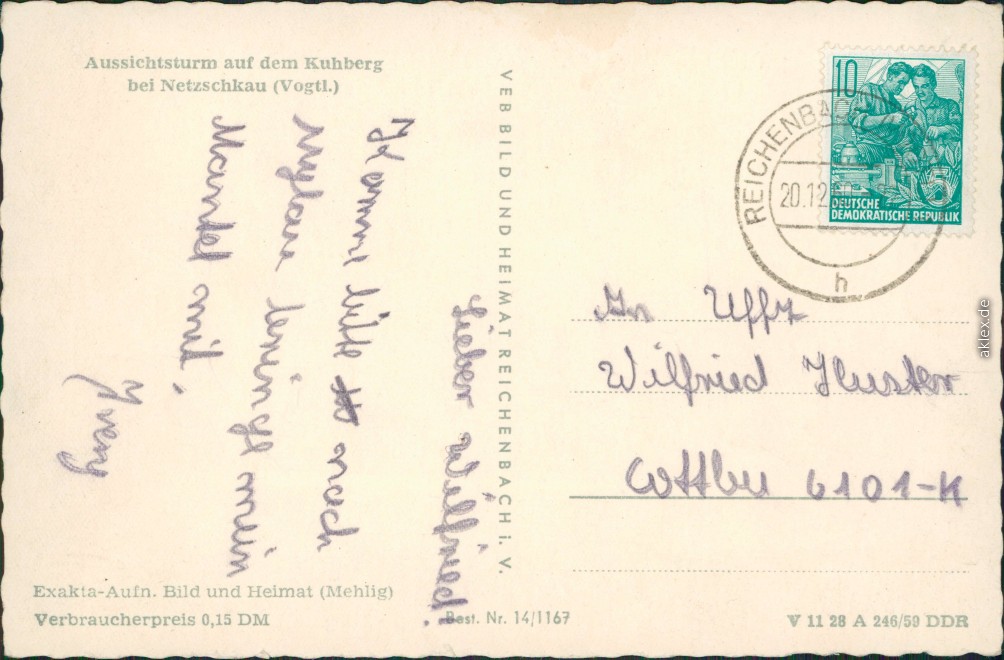 Aussichtsturm auf dem Kuhberg
bei Netzschkau (Vogtl.)
VEB BILD UND HEIMAT REICHENBACH i. V.
Lieber Wilfried!
Komme bitte nach
Mylau bringt mein
Mantel mit.
10
5
DEUTSCHE
DEMOKRATISCHE REPUBLIK
REICHENBACH
20.12
h
An Uffz
Wilfried Huster
Cottbus 6101-K
Exakta-Aufn. Bild und Heimat (Mehlig)
Verbraucherpreis 0,15 DM
Best. Nr. 14/1167
V 11 28 A 246/59 DDR
aklex.de